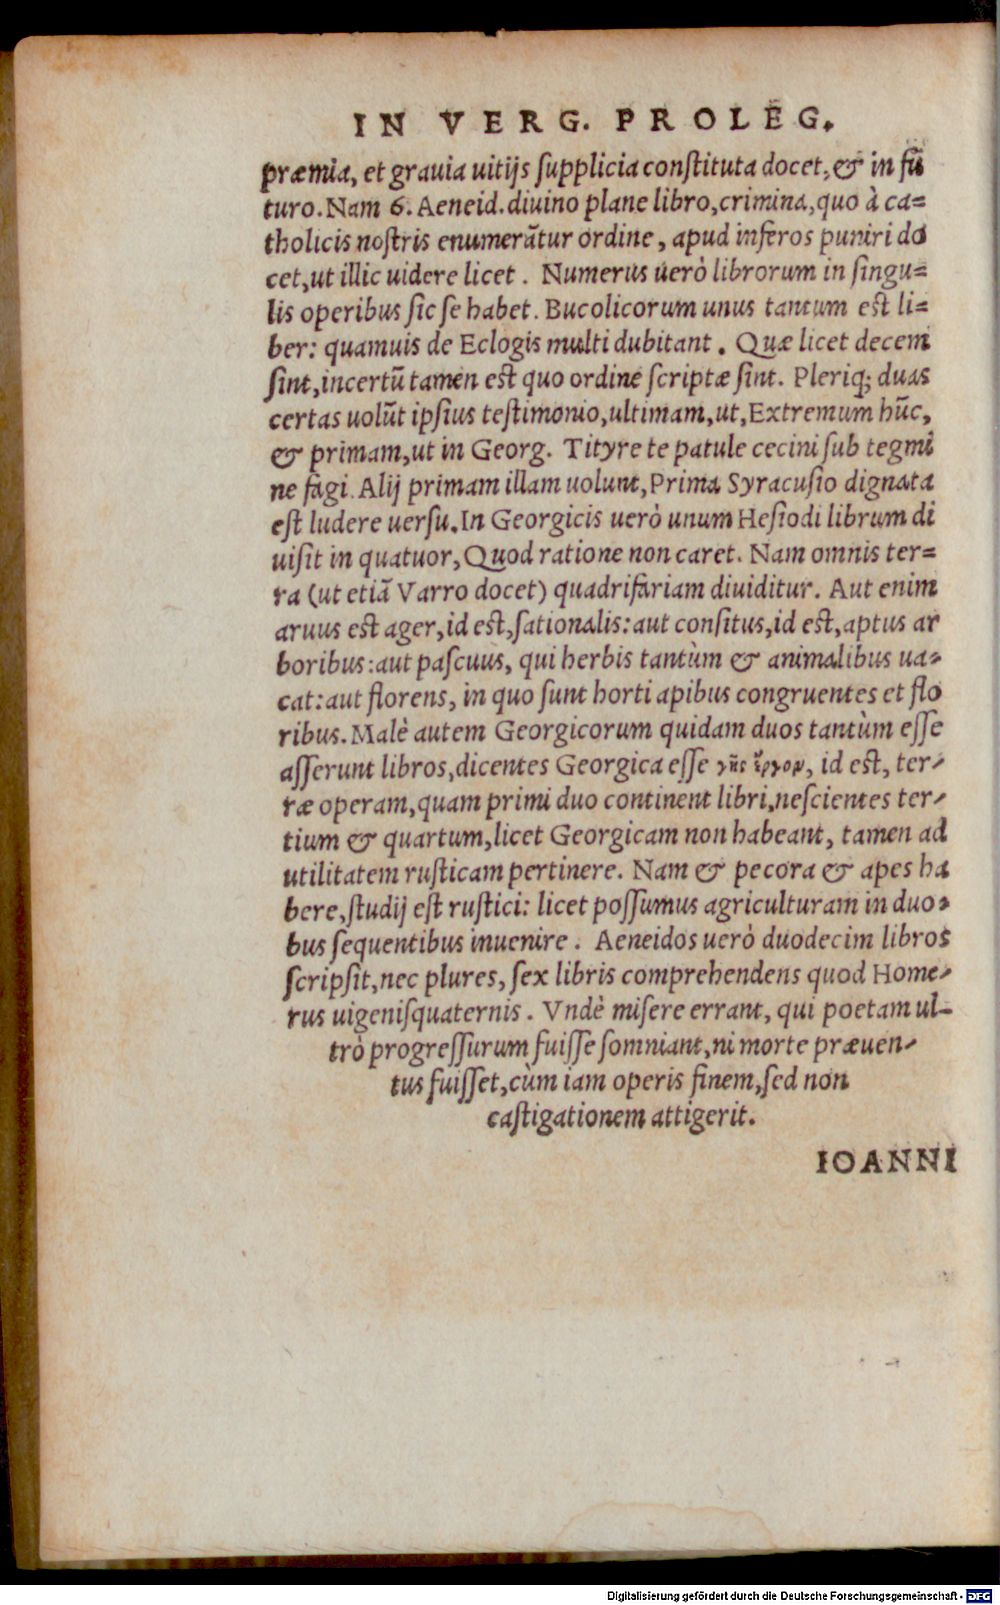 IN VERG. PROLEG.
præmia, et grauia uitijs supplicia constituta docet, & in fū
turo. Nam 6. Aeneid. diuino plane libro, crimina, quo à ca=
tholicis nostris enumerātur ordine, apud inferos puniri do
cet, ut illic uidere licet. Numerus uerò librorum in singu=
lis operibus sic se habet. Bucolicorum unus tantum est li=
ber: quamuis de Eclogis multi dubitant. Quæ licet decem
sint, incertū tamen est quo ordine scriptæ sint. Pleriq; duas
certas uolūt ipsius testimonio, ultimam, ut, Extremum hūc,
& primam, ut in Georg. Tityre te patule cecini sub tegmi
ne fagi. Alij primam illam uolunt, Prima Syracusio dignata
est ludere uersu. In Georgicis uerò unum Hesiodi librum di
uisit in quatuor, Quod ratione non caret. Nam omnis ter=
ra (ut etiā Varro docet) quadrifariam diuiditur. Aut enim
aruus est ager, id est, sationalis: aut consitus, id est, aptus ar
boribus: aut pascuus, qui herbis tantùm & animalibus ua=
cat: aut florens, in quo sunt horti apibus congruentes et flo
ribus. Malè autem Georgicorum quidam duos tantùm esse
asserunt libros, dicentes Georgica esse γῆς ἔργον, id est, ter-
ræ operam, quam primi duo continent libri, nescientes ter-
tium & quartum, licet Georgicam non habeant, tamen ad
utilitatem rusticam pertinere. Nam & pecora & apes ha
bere, studij est rustici: licet possumus agriculturam in duo=
bus sequentibus inuenire. Aeneidos uerò duodecim libros
scripsit, nec plures, sex libris comprehendens quod Home-
rus uigenisquaternis. Vndè misere errant, qui poetam ul-
trò progressurum fuisse somniant, ni morte præuen-
tus fuisset, cùm iam operis finem, sed non
castigationem attigerit.
IOANNI
Digitalisierung gefördert durch die Deutsche Forschungsgemeinschaft - DFG